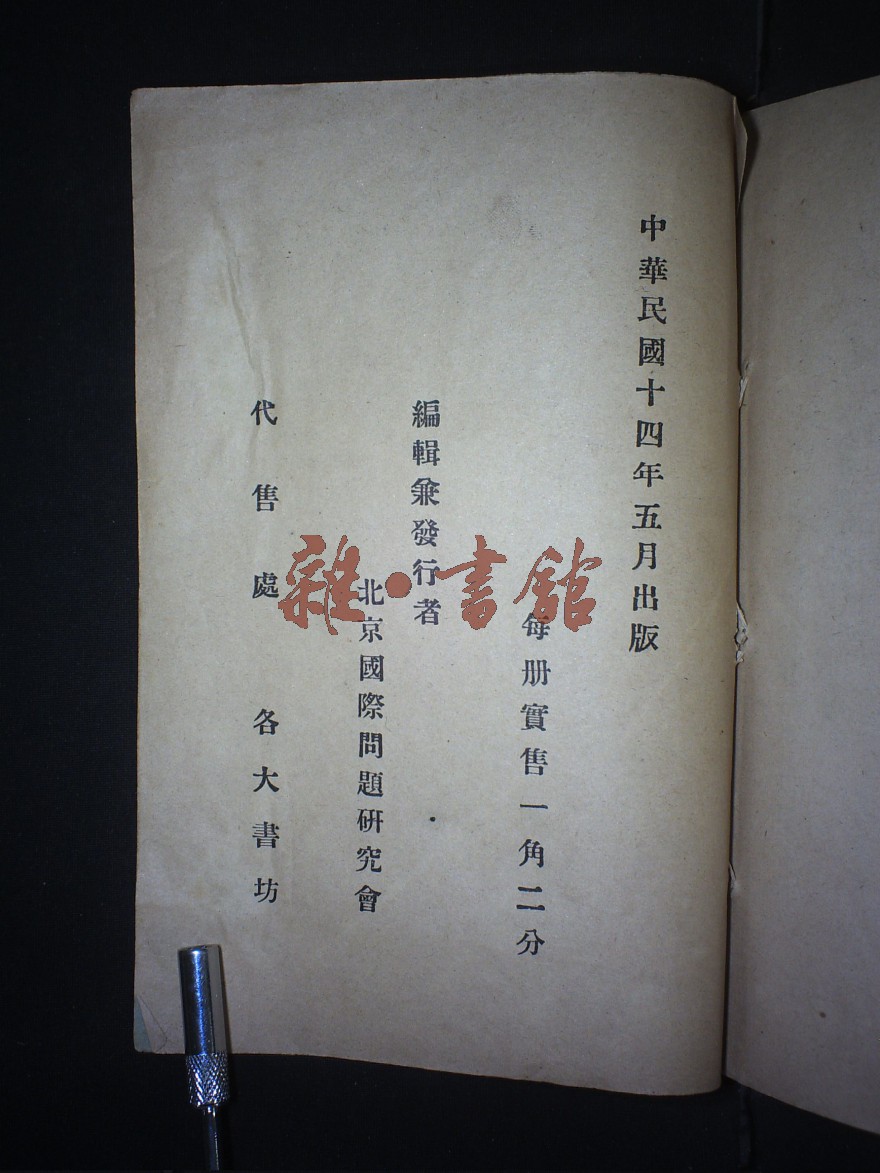 中華民國十四年五月出版
每册實售一角二分
編輯兼發行者
北京國際問題研究會
代售處 各大書坊
雜·書館